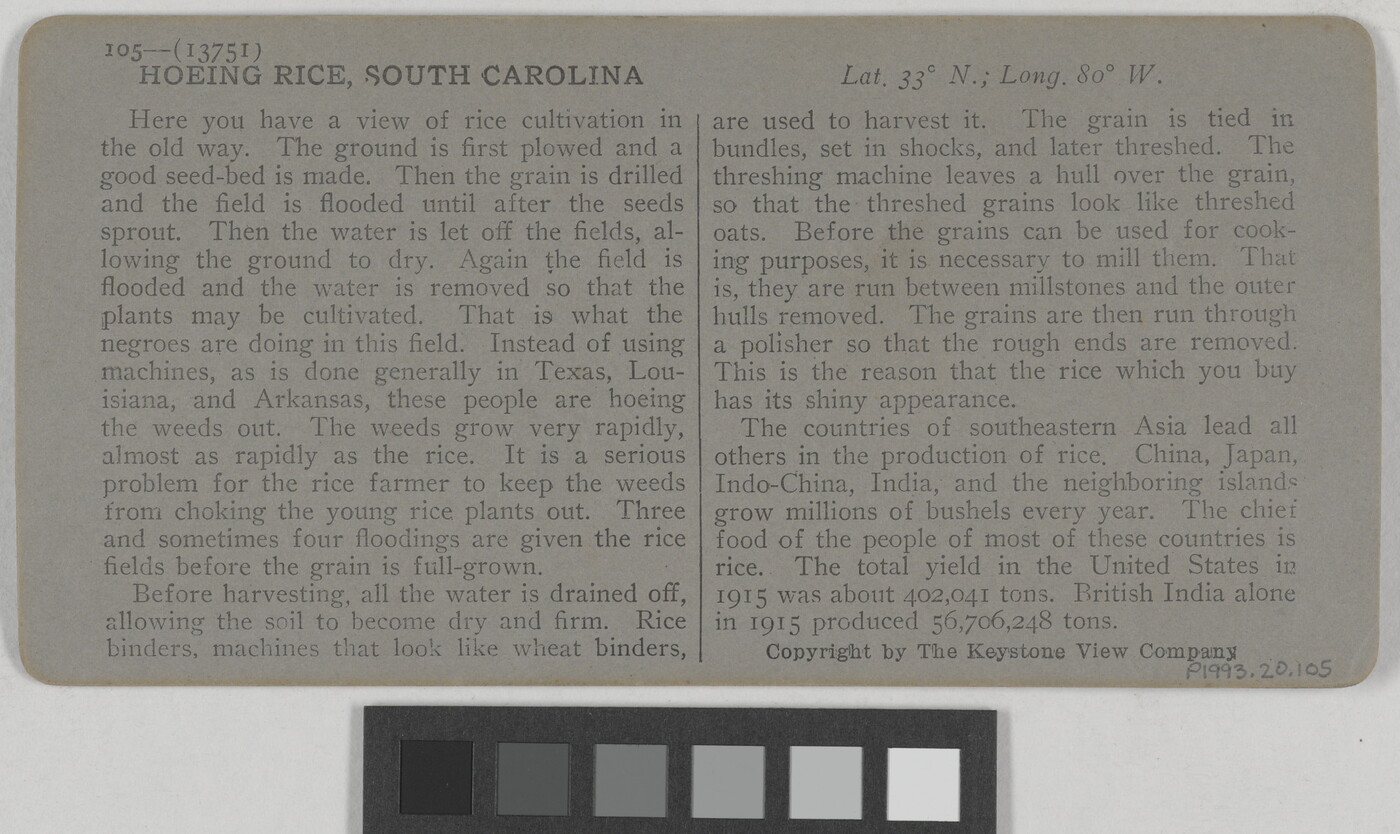 105—(13751)
HOEING RICE, SOUTH CAROLINA
Lat. 33° N.; Long. 80° W.
Here you have a view of rice cultivation in
the old way. The ground is first plowed and a
good seed-bed is made. Then the grain is drilled
and the field is flooded until after the seeds
sprout. Then the water is let off the fields, al-
lowing the ground to dry. Again the field is
flooded and the water is removed so that the
plants may be cultivated. That is what the
negroes are doing in this field. Instead of using
machines, as is done generally in Texas, Lou-
isiana, and Arkansas, these people are hoeing
the weeds out. The weeds grow very rapidly,
almost as rapidly as the rice. It is a serious
problem for the rice farmer to keep the weeds
from choking the young rice plants out. Three
and sometimes four floodings are given the rice
fields before the grain is full-grown.
Before harvesting, all the water is drained off,
allowing the soil to become dry and firm. Rice
binders, machines that look like wheat binders,
are used to harvest it. The grain is tied in
bundles, set in shocks, and later threshed. The
threshing machine leaves a hull over the grain,
so that the threshed grains look like threshed
oats. Before the grains can be used for cook-
ing purposes, it is necessary to mill them. That
is, they are run between millstones and the outer
hulls removed. The grains are then run through
a polisher so that the rough ends are removed.
This is the reason that the rice which you buy
has its shiny appearance.
The countries of southeastern Asia lead all
others in the production of rice. China, Japan,
Indo-China, India, and the neighboring islands
grow millions of bushels every year. The chief
food of the people of most of these countries is
rice. The total yield in the United States in
1915 was about 402,041 tons. British India alone
in 1915 produced 56,706,248 tons.
Copyright by The Keystone View Company
P1993.20.105